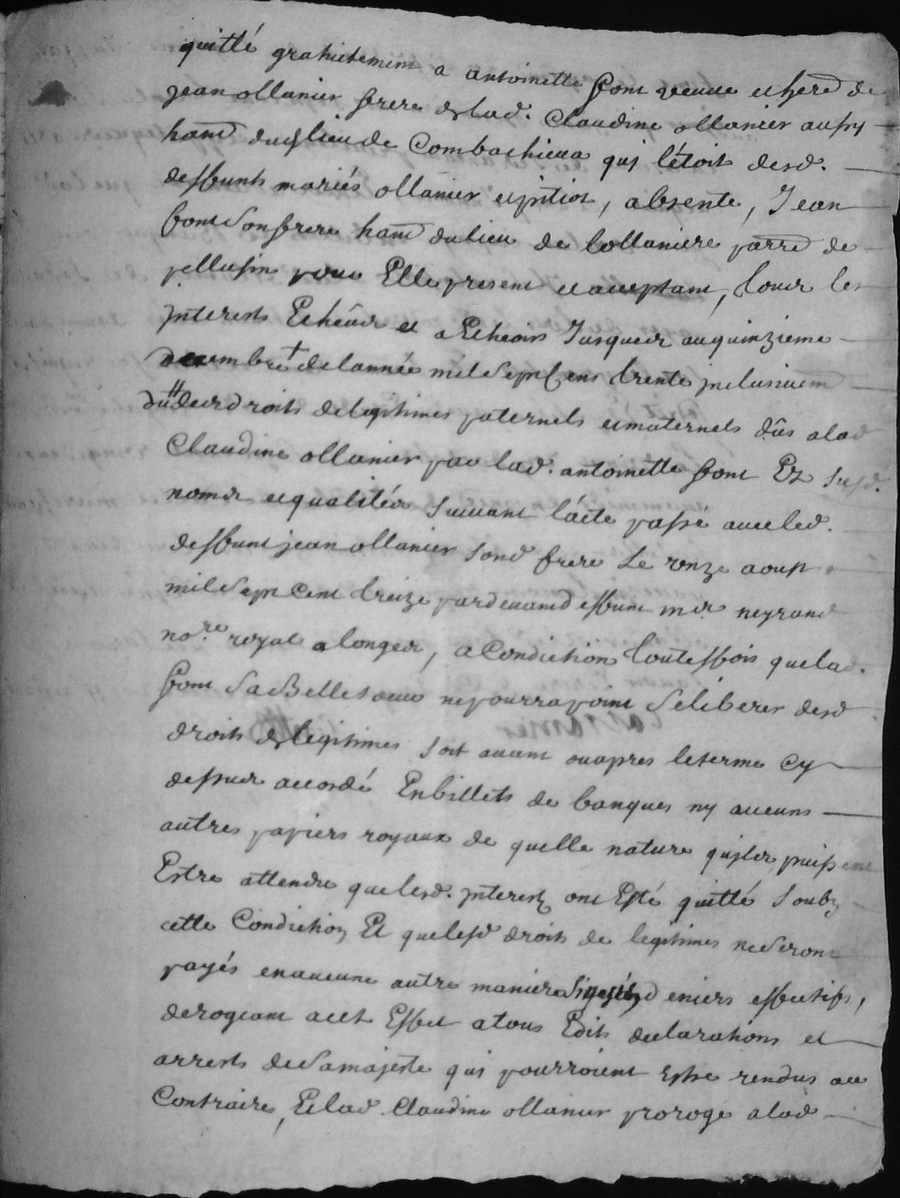 quitté gratuitement a antoinette font veuve et herê de
jean ollanier frere de lad. Claudine ollanier aussy
hant du lieu de Combachieux qui l'étoit desd.
deffunts mariés ollanier et pitiot, absente, Jean
font son frere hant du lieu de lollaniere parre de
pellusin pour Elle present et acceptant, tous les
jnterests Echeûs et a Echeoir Jusques au quinzieme
decembre + de l'année mil sept Cens trente jnclusivemt
dûs des droits de legitimes paternels et maternels dûs a lad
Claudine ollanier par lad. antoinette font Ez susd.
noms et qualités suivant l'acte passé avec led.
deffunt jean ollanier sond frere Le onze aoust
mil sept Cent treize pardevant deffunt me neyrand
nore royal a longes, a Condiction touteffois que lad.
font sa Belle soeur ne pourra point se liberer desd
droits de legitimes soit avant ou apres le terme cy
dessus accordé En billets de banques ny aucuns
autres papiers royaux de quelle nature qu'jls puissent
Estre attendu que lesd. jnterests ont Esté quitté soubz
cette Condiction Et que lesd droits de legitimes ne seront
payés en aucune autre maniere deniers effectifs,
derogeant a cet Effet a tous Edits declarations et
arrests de sa majesté qui pourroient Estre rendus au
Contraire, Et lad Claudine ollanier proroge a lad